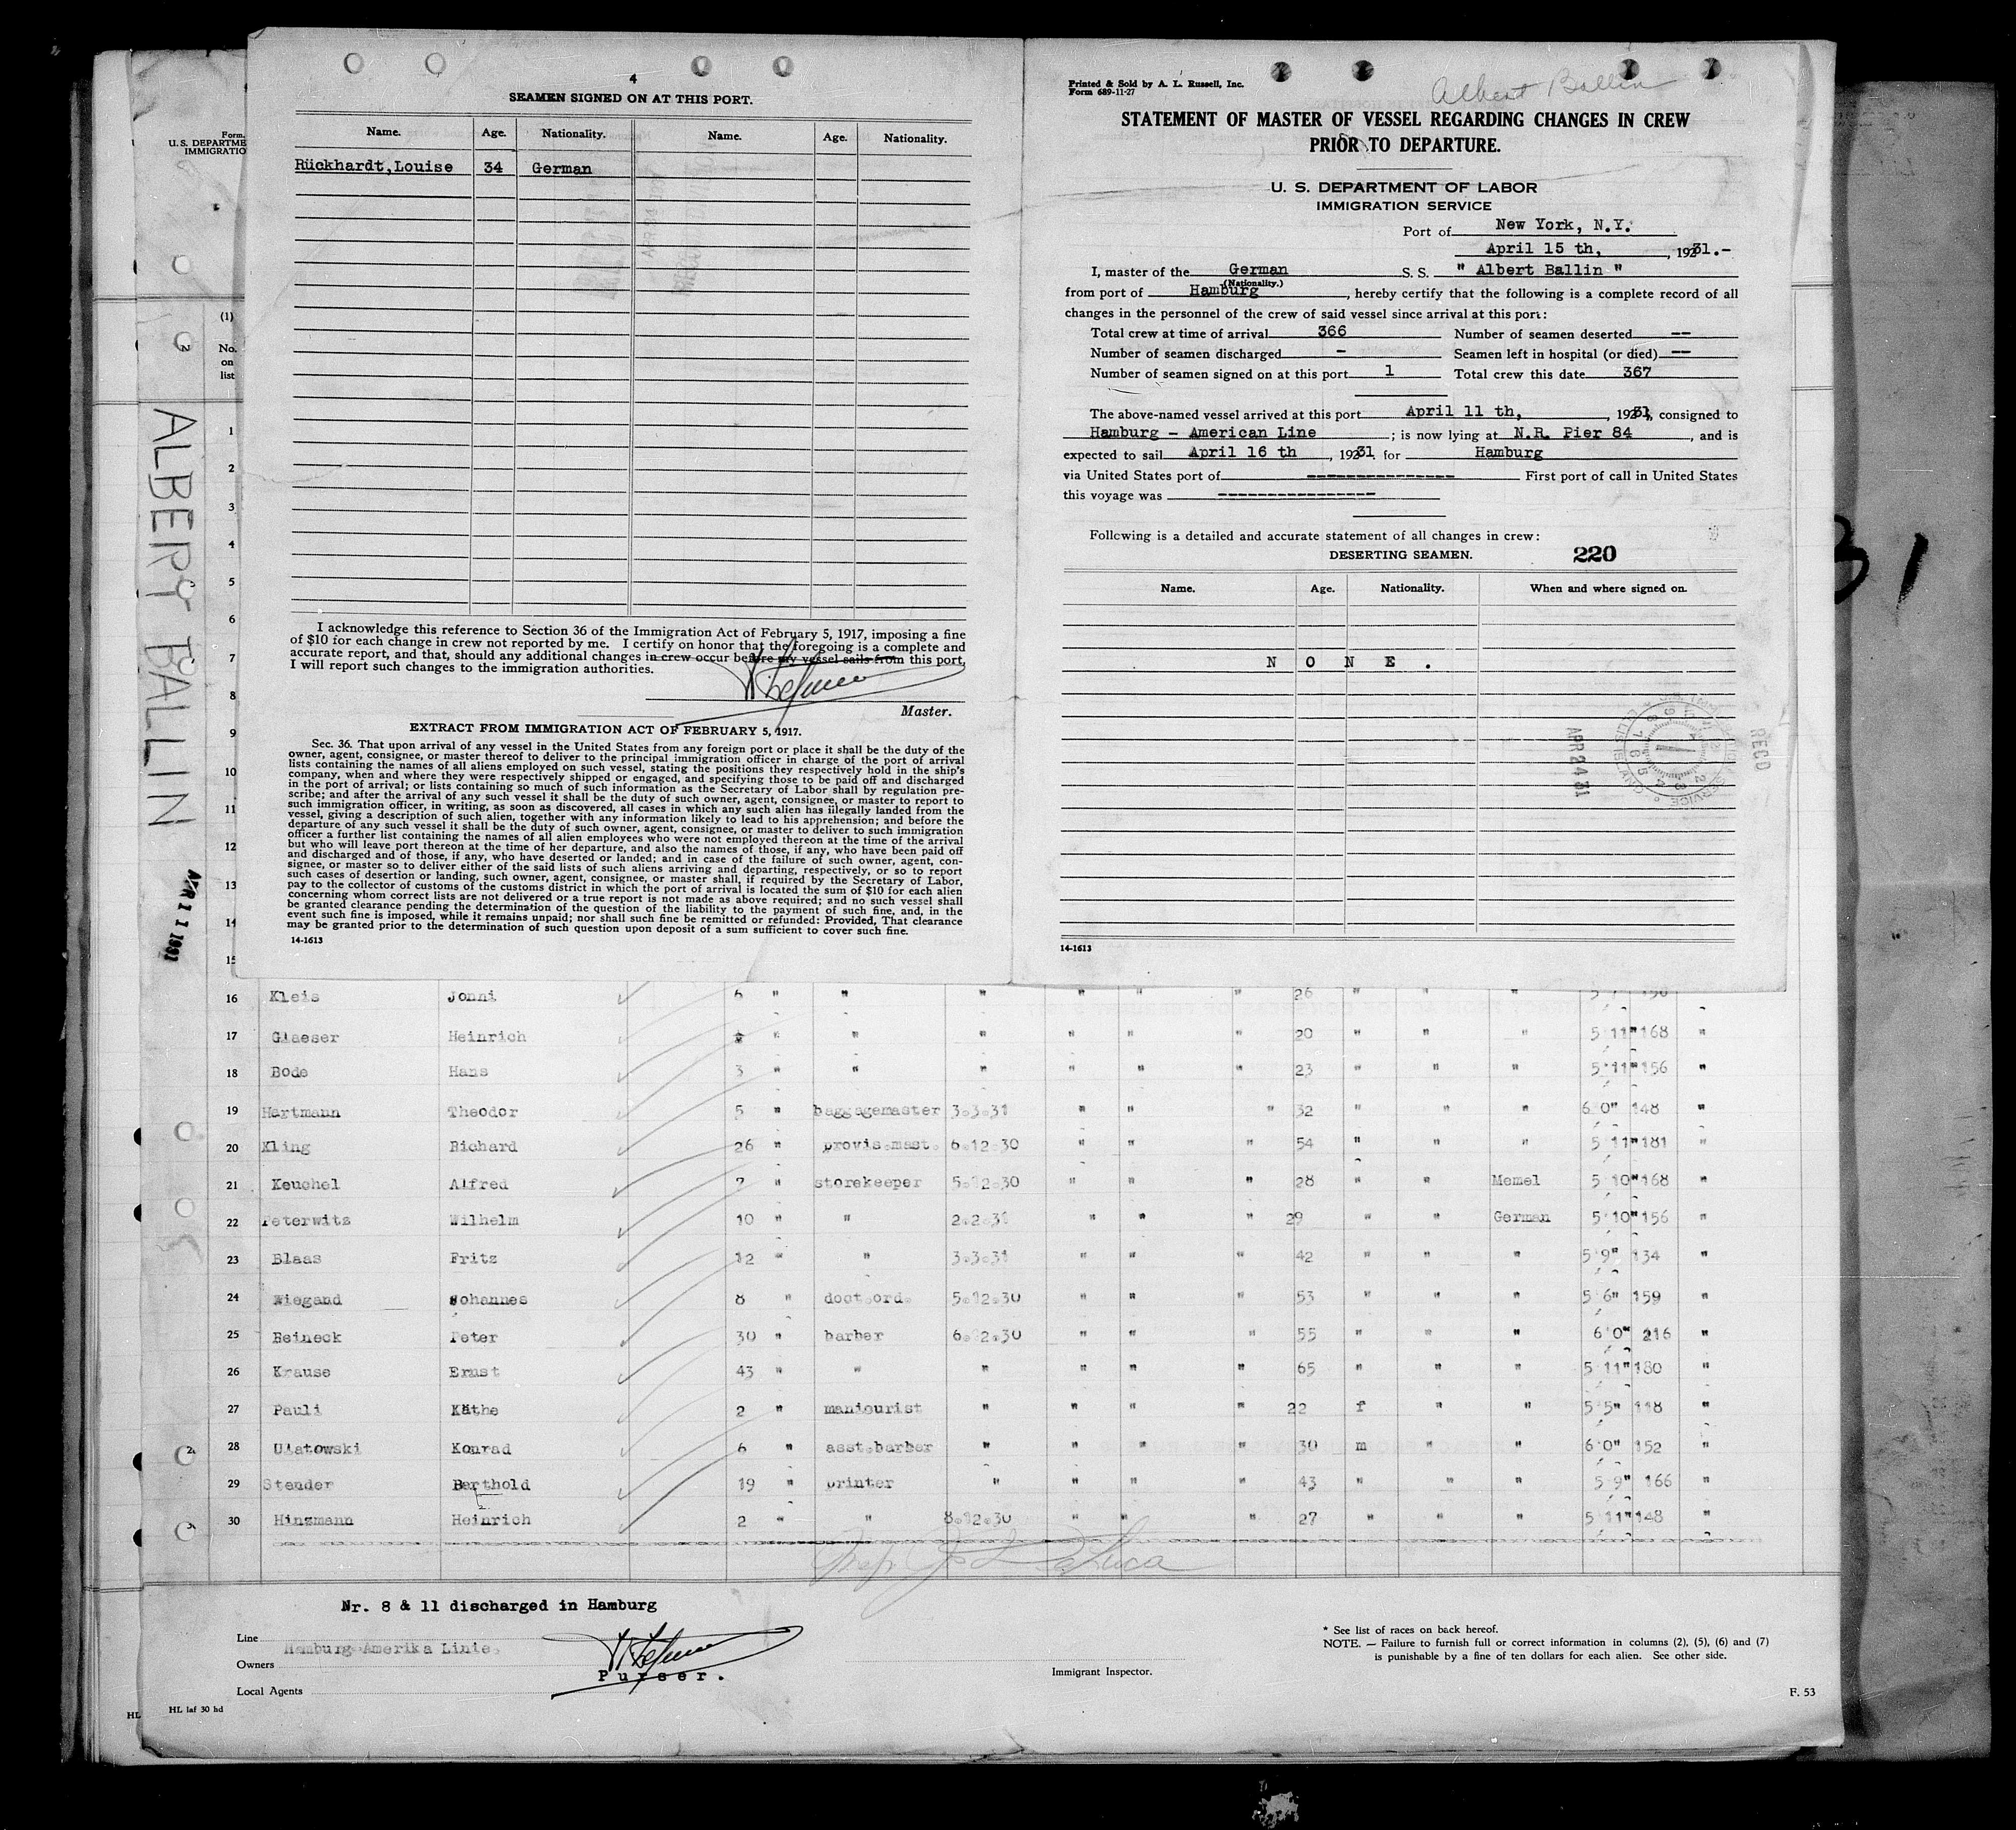 4
SEAMEN SIGNED ON AT THIS PORT.
Name. Age. Nationality. Name. Age. Nationality.
Rückhardt,Louise 34 German
I acknowledge this reference to Section 36 of the Immigration Act of February 5, 1917, imposing a fine
of $10 for each change in crew not reported by me. I certify on honor that the foregoing is a complete and
accurate report, and that, should any additional changes in crew occur before my vessel sails from this port,
I will report such changes to the immigration authorities.
Master.
EXTRACT FROM IMMIGRATION ACT OF FEBRUARY 5, 1917.
Sec. 36. That upon arrival of any vessel in the United States from any foreign port or place it shall be the duty of the
owner, agent, consignee, or master thereof to deliver to the principal immigration officer in charge of the port of arrival
lists containing the names of all aliens employed on such vessel, stating the positions they respectively hold in the ship's
company, when and where they were respectively shipped or engaged, and specifying those to be paid off and discharged
in the port of arrival; or lists containing so much of such information as the Secretary of Labor shall by regulation pre-
scribe; and after the arrival of any such vessel it shall be the duty of such owner, agent, consignee, or master to report to
such immigration officer, in writing, as soon as discovered, all cases in which any such alien has illegally landed from the
vessel, giving a description of such alien, together with any information likely to lead to his apprehension; and before the
departure of any such vessel it shall be the duty of such owner, agent, consignee, or master to deliver to such immigration
officer a further list containing the names of all alien employees who were not employed thereon at the time of the arrival
but who will leave port thereon at the time of her departure, and also the names of those, if any, who have been paid off
and discharged and of those, if any, who have deserted or landed; and in case of the failure of such owner, agent, con-
signee, or master so to deliver either of the said lists of such aliens arriving and departing, respectively, or so to report
such cases of desertion or landing, such owner, agent, consignee, or master shall, if required by the Secretary of Labor,
pay to the collector of customs of the customs district in which the port of arrival is located the sum of $10 for each alien
concerning whom correct lists are not delivered or a true report is not made as above required; and no such vessel shall
be granted clearance pending the determination of the question of the liability to the payment of such fine, and, in the
event such fine is imposed, while it remains unpaid; nor shall such fine be remitted or refunded: Provided, That clearance
may be granted prior to the determination of such question upon deposit of a sum sufficient to cover such fine.
14-1613
Printed & Sold by A. L. Russell, Inc.
Form 689-11-27
Albert Ballin
STATEMENT OF MASTER OF VESSEL REGARDING CHANGES IN CREW
PRIOR TO DEPARTURE.
U. S. DEPARTMENT OF LABOR
IMMIGRATION SERVICE
Port of New York, N.Y.
April 15 th, , 1931.-
I, master of the German S. S. " Albert Ballin "
(Nationality.)
from port of Hamburg , hereby certify that the following is a complete record of all
changes in the personnel of the crew of said vessel since arrival at this port:
Total crew at time of arrival 366 Number of seamen deserted --
Number of seamen discharged - Seamen left in hospital (or died) --
Number of seamen signed on at this port 1 Total crew this date 367
The above-named vessel arrived at this port April 11 th, , 1931, consigned to
Hamburg - American Line ; is now lying at N.R. Pier 84 , and is
expected to sail April 16 th , 1931. for Hamburg
via United States port of --------------- First port of call in United States
this voyage was ----------------
Following is a detailed and accurate statement of all changes in crew:
DESERTING SEAMEN. 220
Name. Age. Nationality. When and where signed on.
N O N E .
APR 24 31
REC'D
14-1613
Form.
U. S. DEPARTME
IMMIGRATIO
(1)
No.
on
list
ALBERT BALLIN
APR 11 1931
31
1
2
3
4
5
6
7
8
9
10
11
12
13
14
15
16 Kleis Jonni 6 " " " " " " 26 " " " 5 7 150
17 Glaeser Heinrich " " " " " " 20 " " " 5 11" 168 "
18 Bode Hans 3 " " " " " " 23 " " " 5 11" 156 "
19 Hartmann Theodor 5 " baggagemaster 3.3.31 " " " 32 " " " 6 0" 148 "
20 Kling Richard 26 " provis.mast. 6.12.30 " " " 54 " " " 5 11" 181 "
21 Keuchel Alfred 7 " storekeeper 5.12.30 " " " 28 " " Memel 5 10" 168 "
22 Peterwitz Wilhelm 10 " " 2.2.31 " " " 29 " " German 5 10" 156 "
23 Blaas Fritz 12 " " 3.3.31 " " " 42 " " " 5 9" 134 "
24 Wiegand Johannes 8 " doct.ord. 5.12.30 " " " 53 " " " 5 6" 159 "
25 Reineck Peter 30 " barber 6.12.30 " " " 55 " " " 6 0" 216 "
26 Krause Ernst 43 " " " " " " 65 " " " 5 11" 180 "
27 Pauli Käthe 2 " manicurist " " " " 22 f " " 5 5" 118 "
28 Ulatowski Konrad 6 " asst.barber " " " " 30 m " " 6 0" 152 "
29 Stender Berthold 19 " printer " " " " 43 " " " 5 9" 166 "
30 Hinzmann Heinrich 2 " " 8.12.30 " " " 27 " " " 5 11" 148 "
Nr. 8 & 11 discharged in Hamburg
Line Hamburg-Amerika Linie.
Owners
Purser.
Local Agents
Immigrant Inspector.
* See list of races on back hereof.
NOTE. — Failure to furnish full or correct information in columns (2), (5), (6) and (7)
is punishable by a fine of ten dollars for each alien. See other side.
F. 53
HL HL laf 30 hd